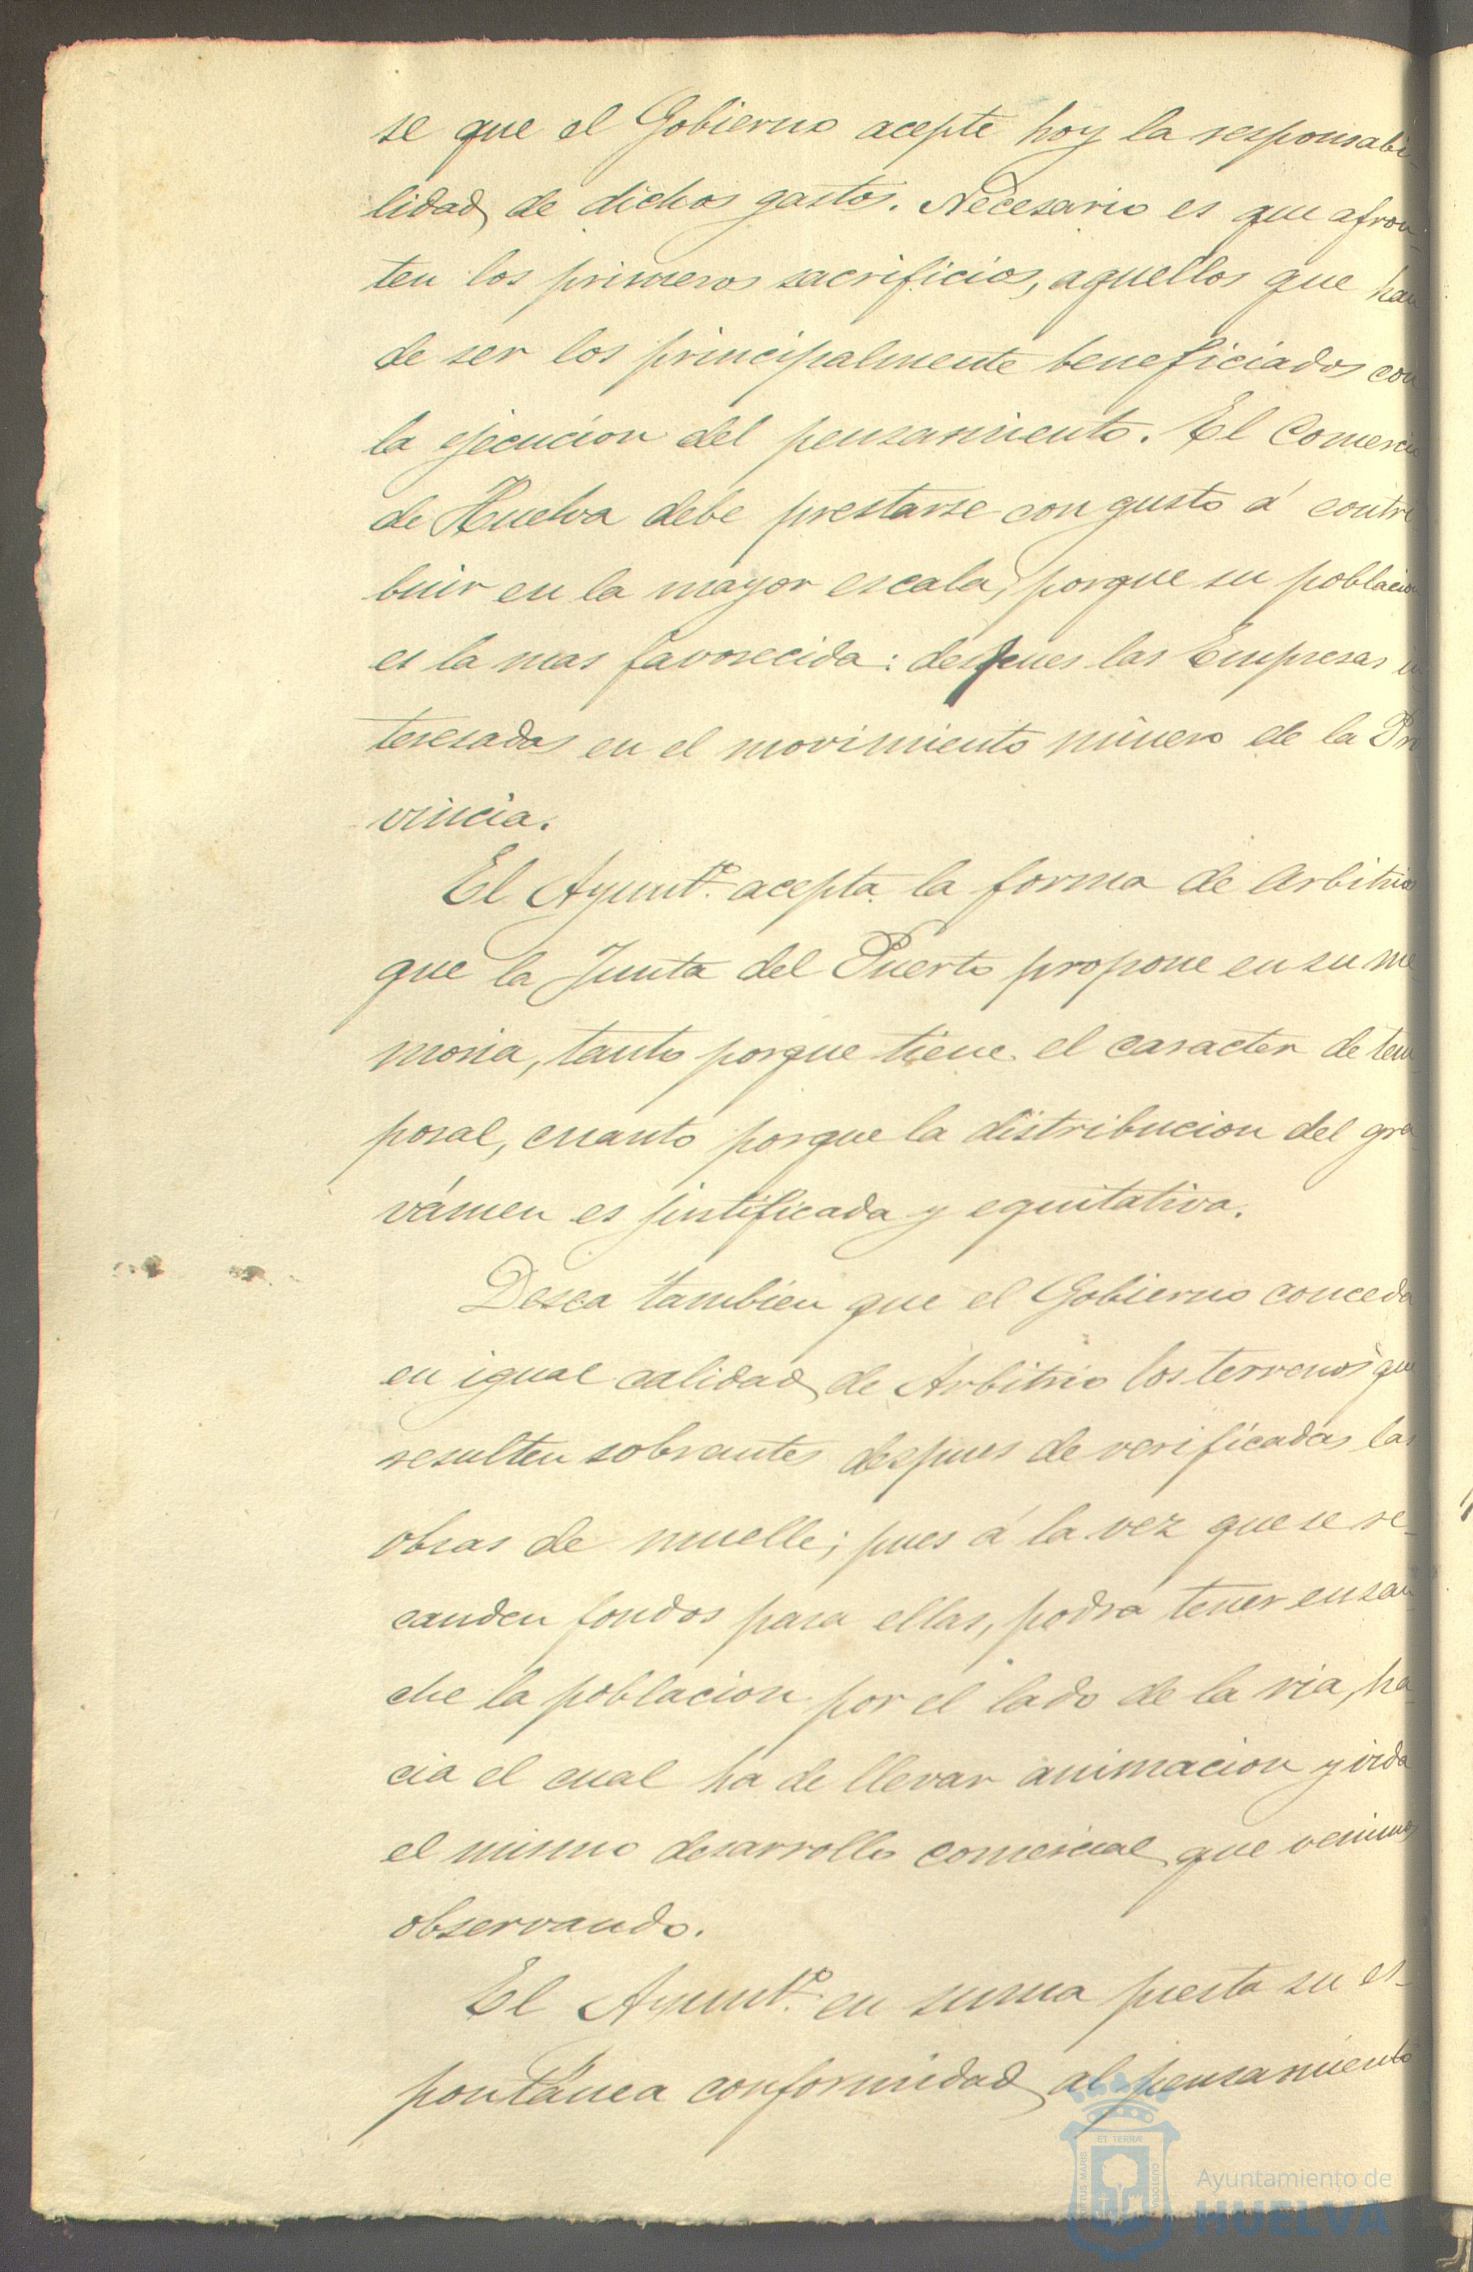 se que el Gobierno acepte hoy la responsabi-
lidad de dichos gastos. Necesario es que afron-
ten los primeros sacrificios, aquellos que han
de ser los principalmente beneficiados con
la ejecucion del pensamiento. El Comercio
de Huelva debe prestarse con gusto á contri
buir en la mayor escala, porque su poblacion
es la mas favorecida: despues las Empresas in
teresadas en el movimiento minero de la Pro
vincia.
El Ayuntº. acepta la forma de arbitrios
que la Junta del Puerto propone en su me
moria, tanto porque tiene el caracter de tem
poral, cuanto porque la distribucion del gra
vámen es justificada y equitativa.
Desea tambien que el Gobierno conceda
en igual calidad de Arbitrio los terrenos que
resulten sobrantes despues de verificadas las
obras de muelle; pues á la vez que se re-
cauden fondos para ellas, podrá tener ensan
che la poblacion por el lado de la ria, ha
cia el cual ha de llevar animacion y vida
el mismo desarrollo comercial que venimos
observando.
El Ayuntº. en suma presta su es-
pontánea conformidad al pensamiento
ET TERRÆ
PORTUS MARIS
CUSTODIA
Ayuntamiento de
HUELVA